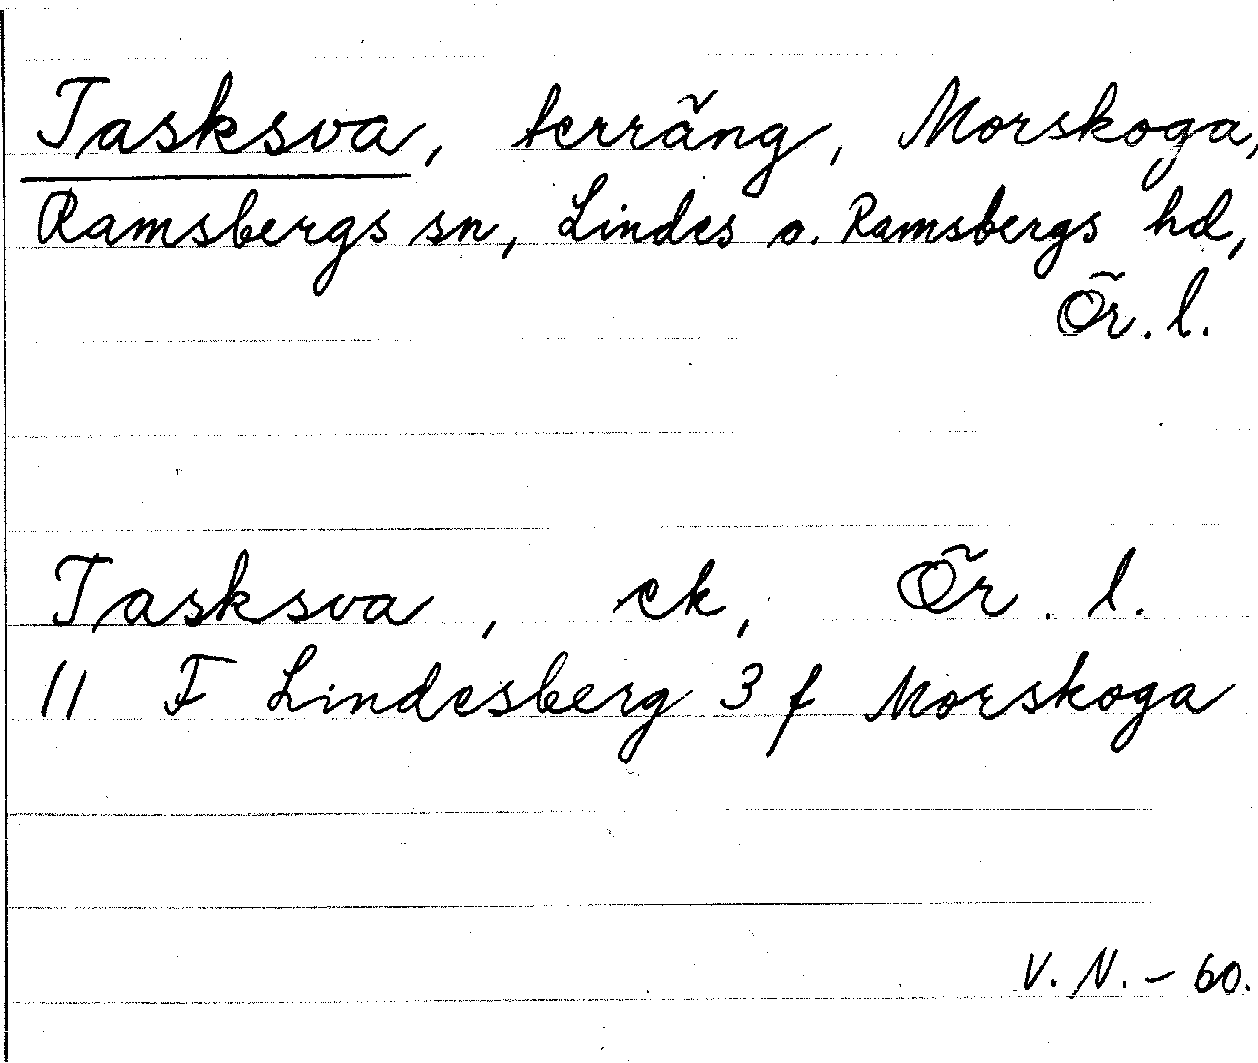 Tasksva, terräng, Morskoga,
Ramsbergs sn, Lindes o. Ramsbergs hd,
Ör. l.
Tasksva, ek, Ör. l.
11 F Lindesberg 3 f Morskoga
V. N. - 60.